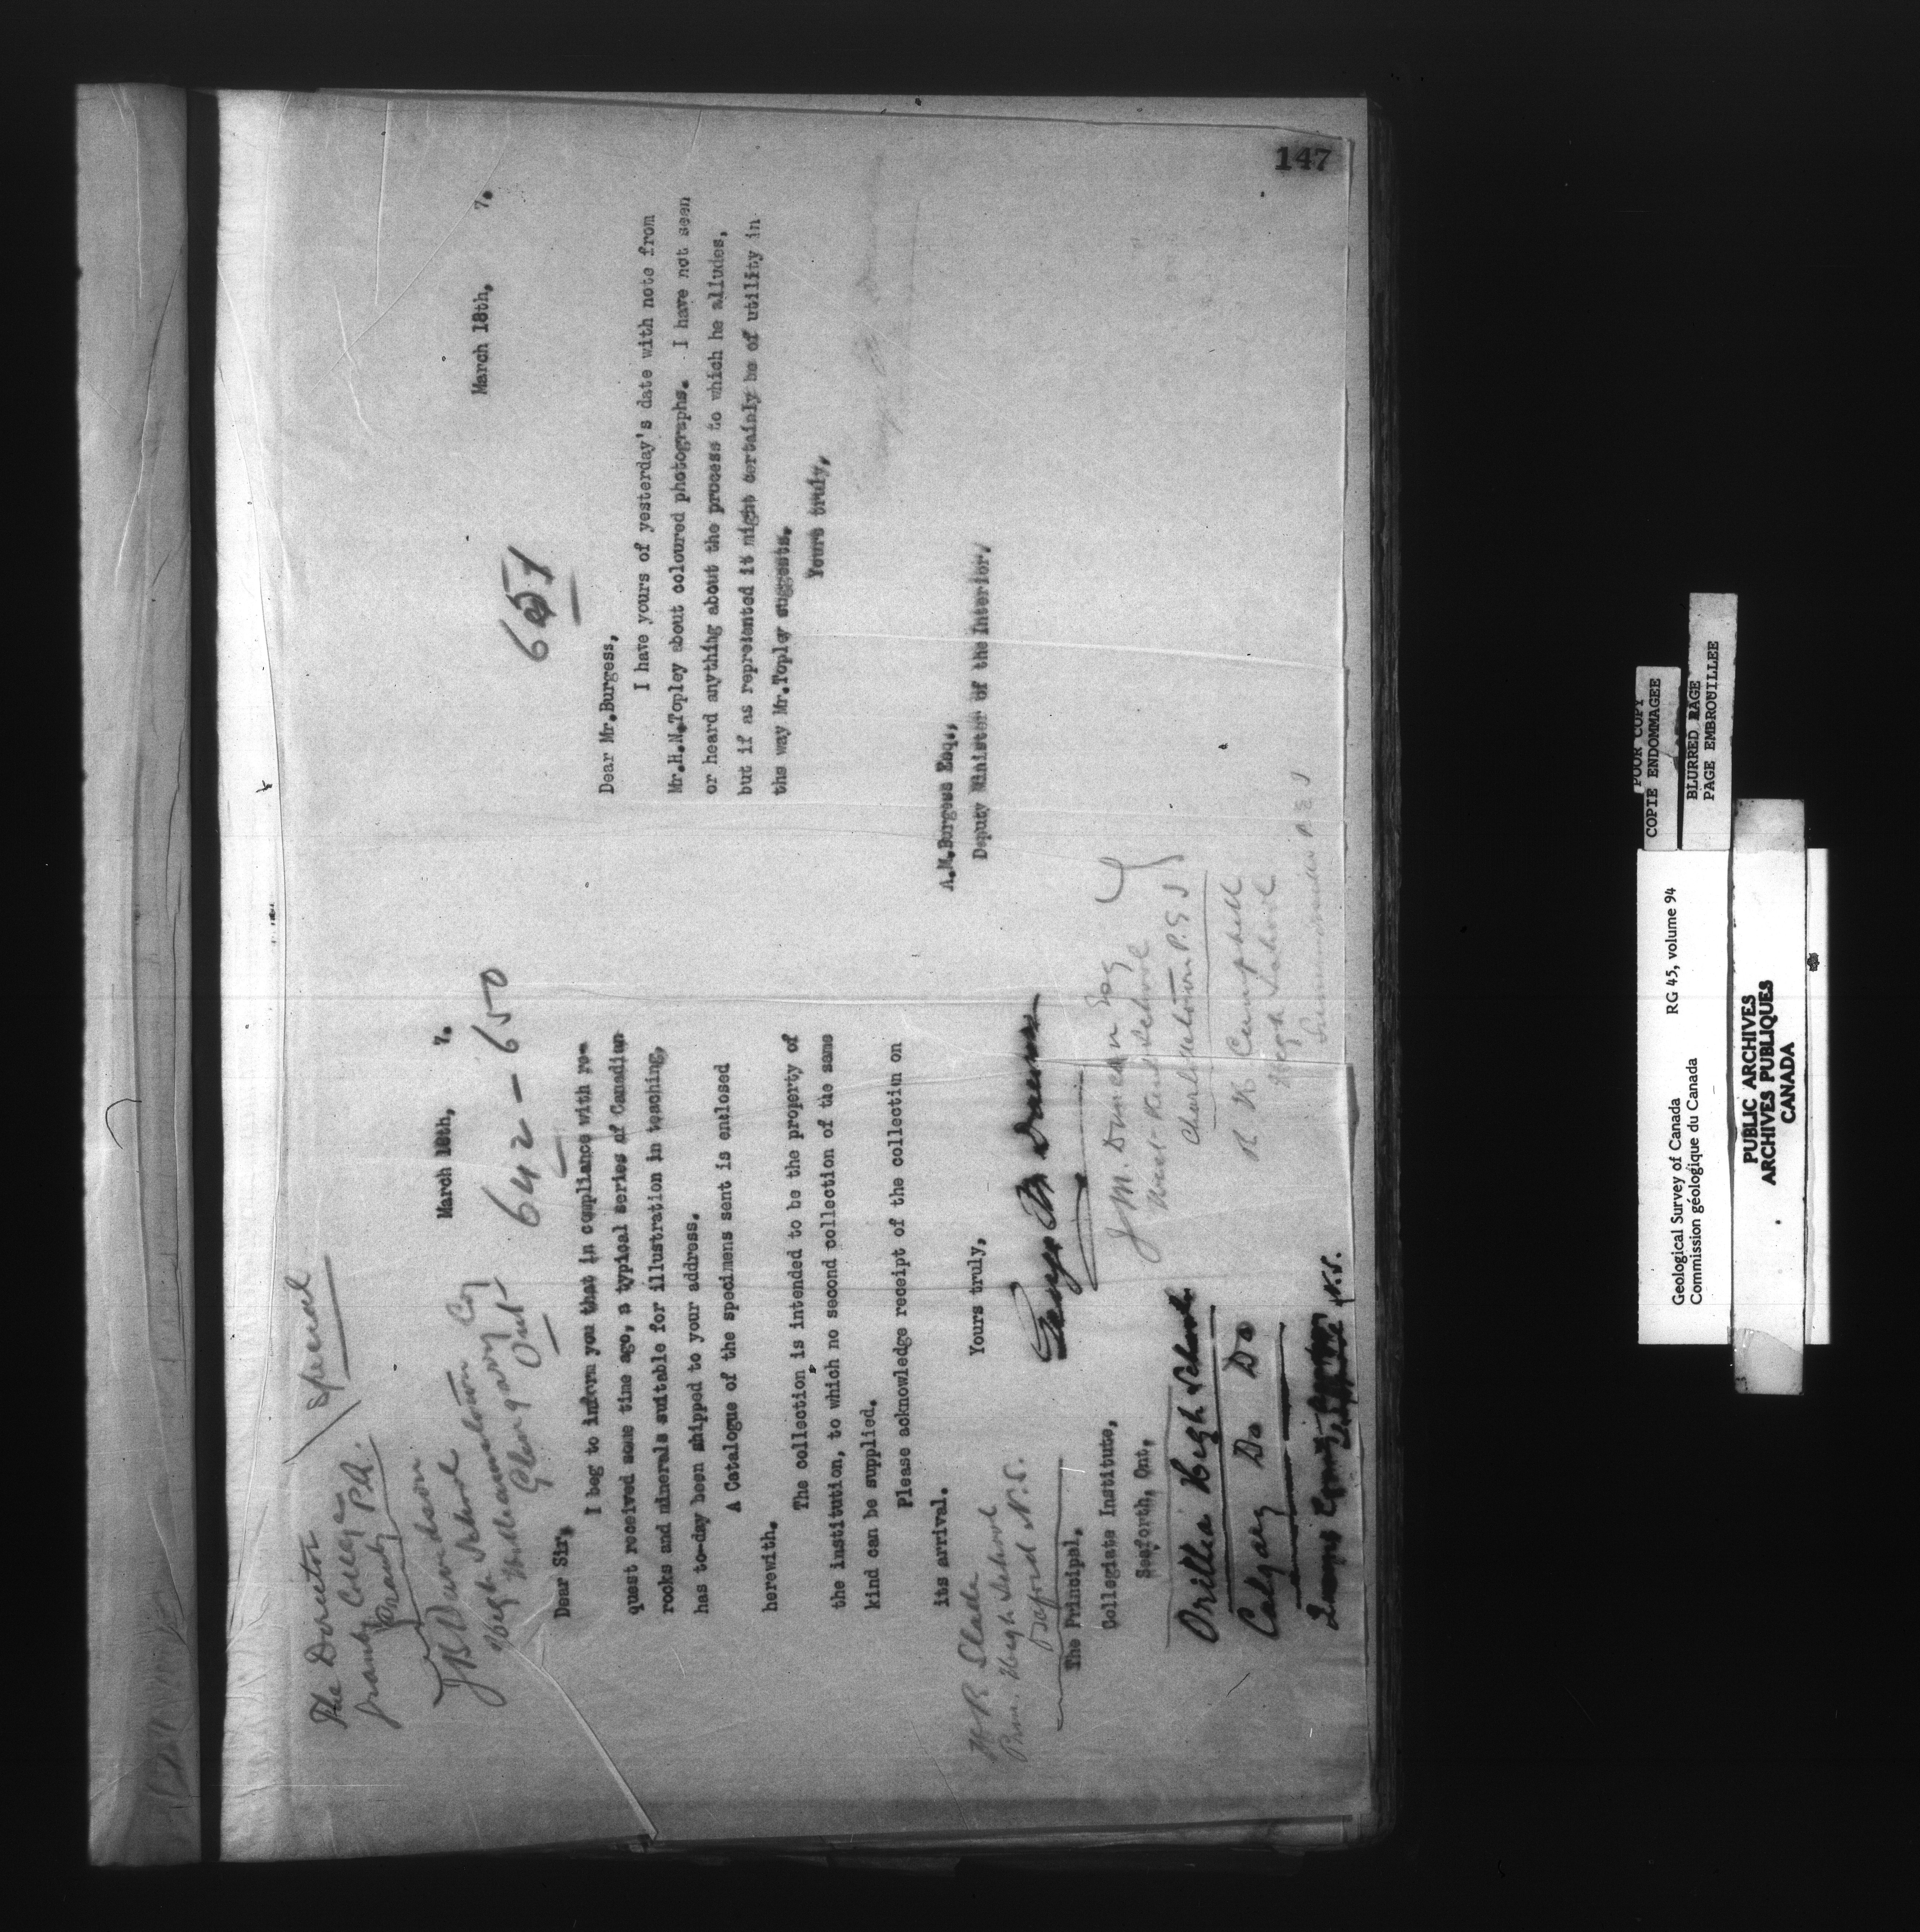 147
The Director
Special
March 18th, 7.
642 - 650
J B Davidson
High School
Williamstown
Glengarry Co
Ont
Dear Sir,
I beg to inform you that in compliance with re-
quest received some time ago, a typical series of Canadian
rocks and minerals suitable for illustration in teaching,
has to-day been shipped to your address.
A Catalogue of the specimens sent is enclosed
herewith.
The collection is intended to be the property of
the institution, to which no second collection of the same
kind can be supplied.
Please acknowledge receipt of the collection on
its arrival.
Yours truly,
George M Dawson
H B Slade
Prin. High School
N.S.
The Principal,
Collegiate Institute,
Seaforth, Ont,
Orillia High School
Calgary Do Do
N.S.
J M. Duncan Esq
West Kent School
Charlottetown P.E.I
High School
Summerside P.E.I
March 18th, 7.
651
Dear Mr.Burgess,
I have yours of yesterday's date with note from
Mr.H.N.Topley about coloured photographs. I have not seen
or heard anything about the process to which he alludes,
but if as represented it might certainly be of utility in
the way Mr.Topley suggests.
Yours truly,
A.M.Burgess Esq.,
Deputy Minister of the Interior,
POOR COPY
COPIE ENDOMMAGEE
BLURRED PAGE
PAGE EMBROUILLEE
Geological Survey of Canada RG 45, volume 94
Commission géologique du Canada
PUBLIC ARCHIVES
ARCHIVES PUBLIQUES
CANADA